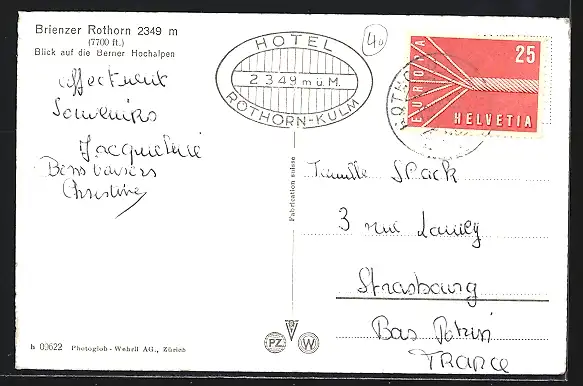 Brienzer Rothorn 2349 m
(7700 ft.)
Blick auf die Berner Hochalpen
affectueux
Souvenirs
Jacqueline
Bons baisers
Christine
HOTEL
2349 m ü. M.
ROTHORN-KULM
40
EUROPA
25
HELVETIA
ROTHORN
Fabrication suisse
Famille Spack
3 rue
Strasbourg
Bas Rhin
FRANCE
PZ W
h 00622 Photoglob-Wehrli AG., Zürich